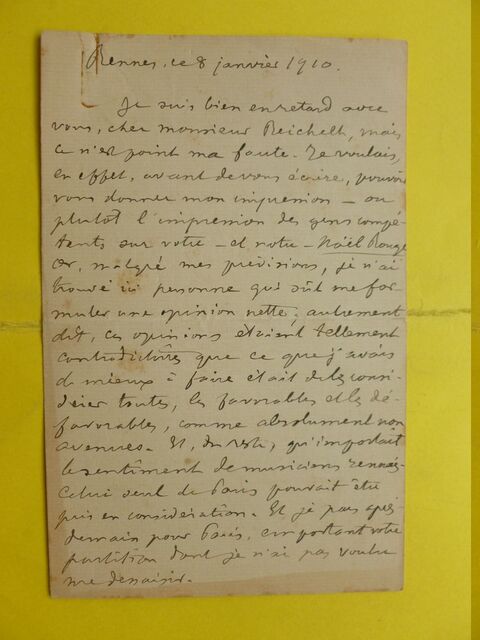 Rennes, le 8 janvier 1910.
Je suis bien en retard avec
vous, cher monsieur Reichelt, mais
ce n'est point ma faute. Je voulais,
en effet, avant de vous écrire, pouvoir
vous donner mon impression — ou
plutôt l'impression des gens compé-
tents sur votre — et notre — Noël Rouge
Or, malgré mes prévisions, je n'ai
trouvé ici personne qui sût me for-
muler une opinion nette; autrement
dit, ces opinions étaient tellement
contradictoires que ce que j'avais
de mieux à faire était de les consi-
dérer toutes, les favorables et les dé-
favorables, comme absolument non
avenues. Et, du reste, qu'importait
le sentiment de musiciens rennais.
Celui seul de Paris pouvait être
pris en considération. Et je pars après
demain pour Paris, emportant votre
partition dont je n'ai pas voulu
me dessaisir.